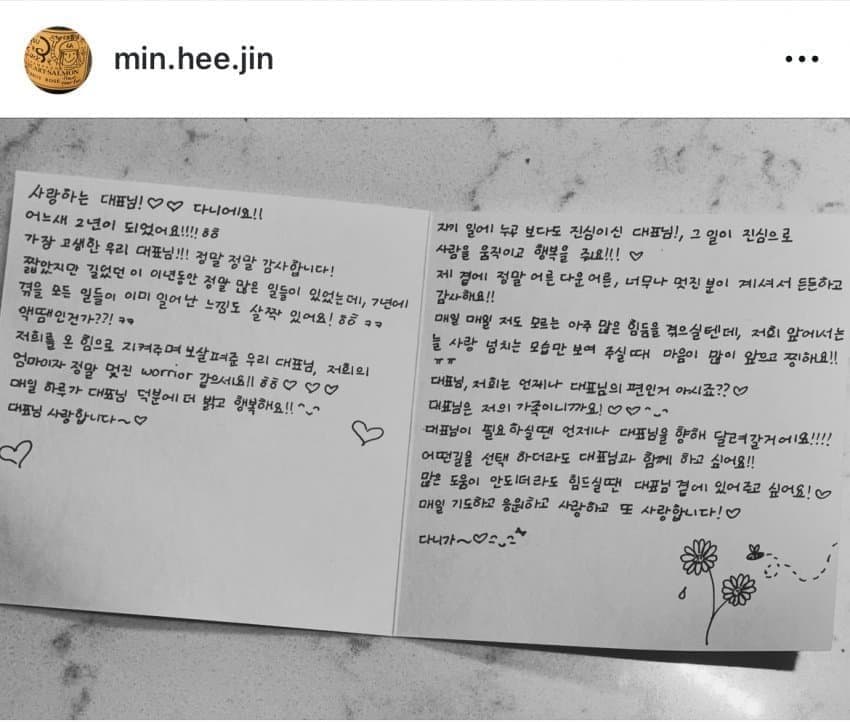 min.hee.jin
사랑하는 대표님!♡♡ 다니에요!!
어느새 2년이 되었어요!!!! ㅎㅎ
가장 고생한 우리 대표님!!! 정말 정말 감사합니다!
짧았지만 길었던 이 이년동안 정말 많은 일들이 있었는데, 7년에
겪을 모든 일들이 이미 일어난 느낌도 살짝 있어요! ㅎㅎ ㅋㅋ
액땜인건가??! ㅋㅋ
저희를 온 힘으로 지켜주며 보살펴준 우리 대표님, 저희의
엄마이자 정말 멋진 worrior 같으세요!! ㅎㅎ♡ ♡ ♡
매일 하루가 대표님 덕분에 더 밝고 행복해요!! ^_^
대표님 사랑합니다~♡
자기 일에 누구 보다도 진심이신 대표님!, 그 일이 진심으로
사람을 움직이고 행복을 줘요!!! ♡
제 곁에 정말 어른 다운 어른, 너무나 멋진 분이 계셔서 든든하고
감사해요!!
매일 매일 저도 모르는 아주 많은 힘듦을 겪으실텐데, 저희 앞에서는
늘 사랑 넘치는 모습만 보여 주실때 마음이 많이 앞으고 찡해요!!
ㅠㅠ
대표님, 저희는 언제나 대표님의 편인거 아시죠??♡
대표님은 저의 가족이니까요! ♡♡^_^
대표님이 필요하실땐 언제나 대표님을 향해 달려갈거에요!!!!
어떤길을 선택 하더라도 대표님과 함께 하고 싶어요!!
많은 도움이 안되더라도 힘드실땐 대표님 곁에 있어주고 싶어요!♡
매일 기도하고 응원하고 사랑하고 또 사랑합니다!♡
다니가~♡